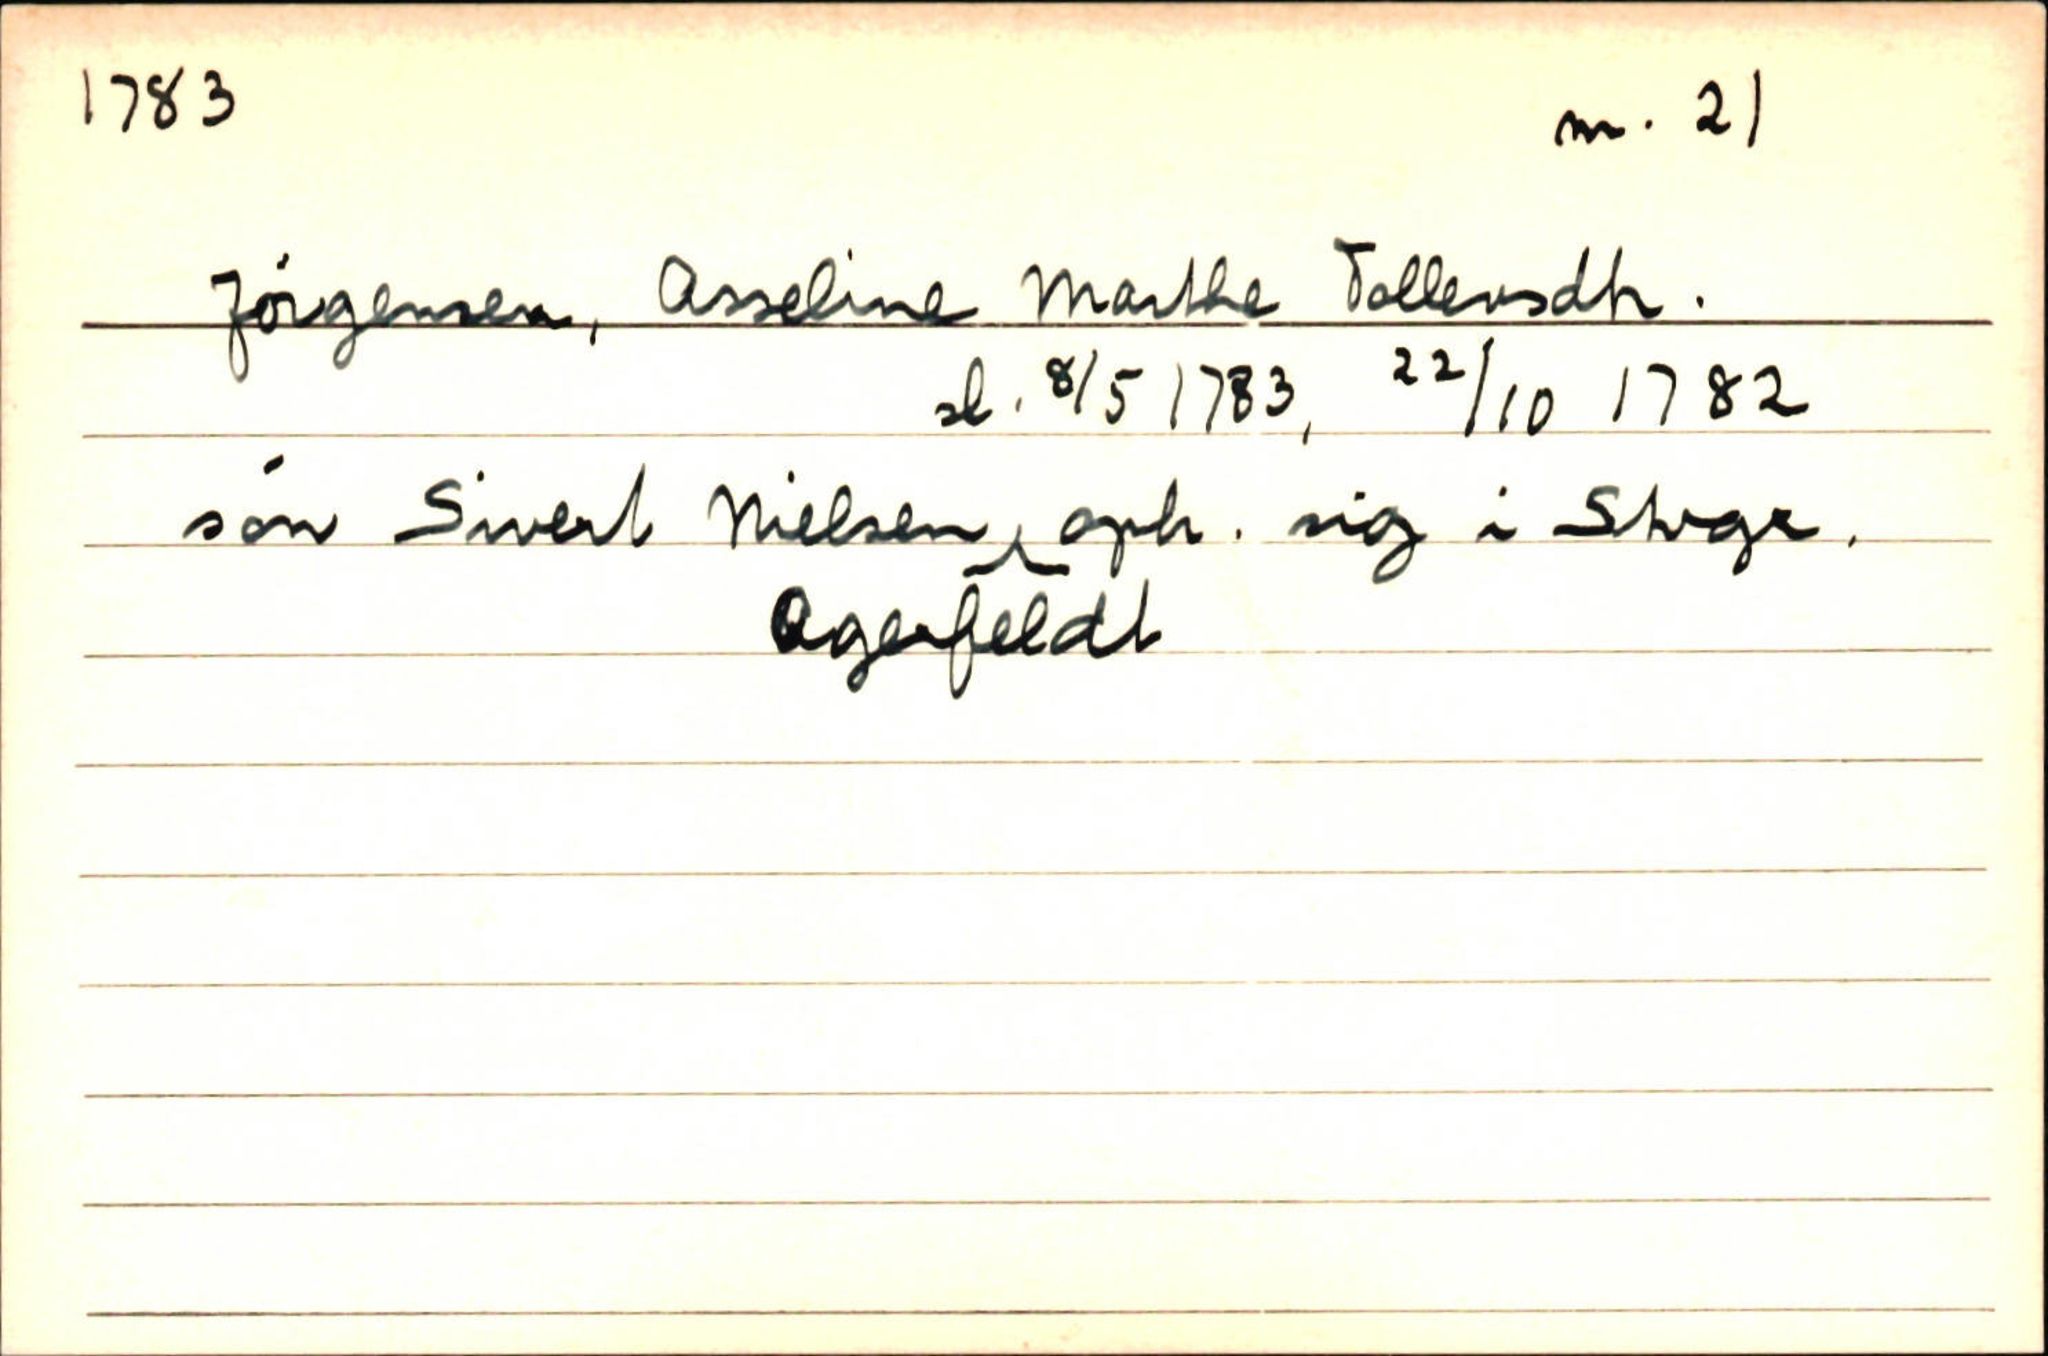 1783 m. 21
Jörgensen, Asseline Marthe Tollevsdtr.
sl. 8/5 1783, 22/10 1782
sön Sivert Nielsen, oph. sig i
Agerfeldt